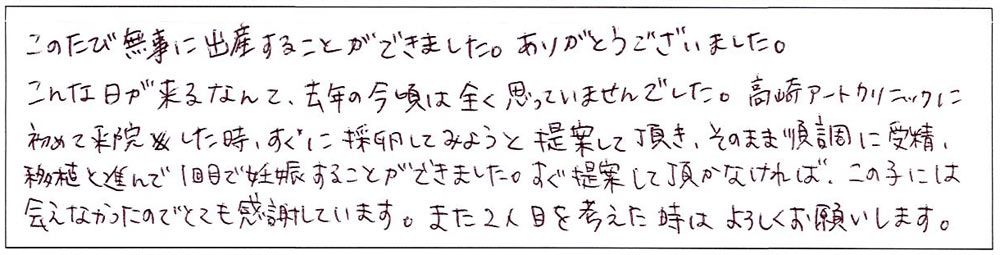 このたび無事に出産することができました。ありがとうございました。
こんな日が来るなんて、去年の今頃は全く思っていませんでした。高崎アートクリニックに
初めて来院した時、すぐに採卵してみようと提案して頂き、そのまま順調に受精、
移植と進んで1回目で妊娠することができました。すぐ提案して頂かなければ、この子には
会えなかったのでとても感謝しています。また2人目を考えた時はよろしくお願いします。